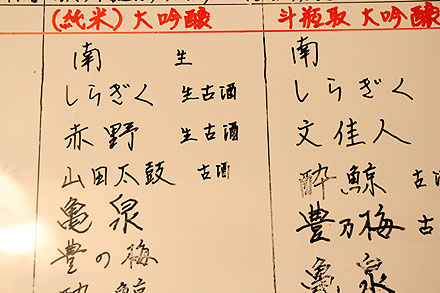 (純米)大吟醸
南 生
しらぎく 生古酒
赤野 生古酒
山田太鼓 古酒
亀泉
豊の梅
酔鯨
斗瓶取 大吟醸
南
しらぎく
文佳人
酔鯨 古酒
豊乃梅 古
亀泉